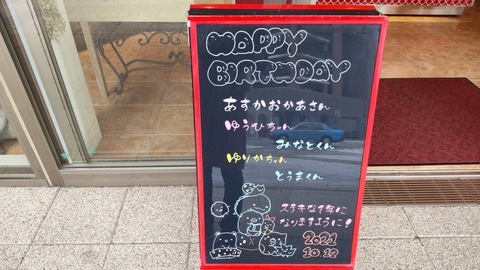 HAPPY
BIRTHDAY
あすかおかあさん
ゆうひちゃん
みなとくん
ゆりかちゃん
とうまくん
ステキな1年に
なりますように!
2021
10 12